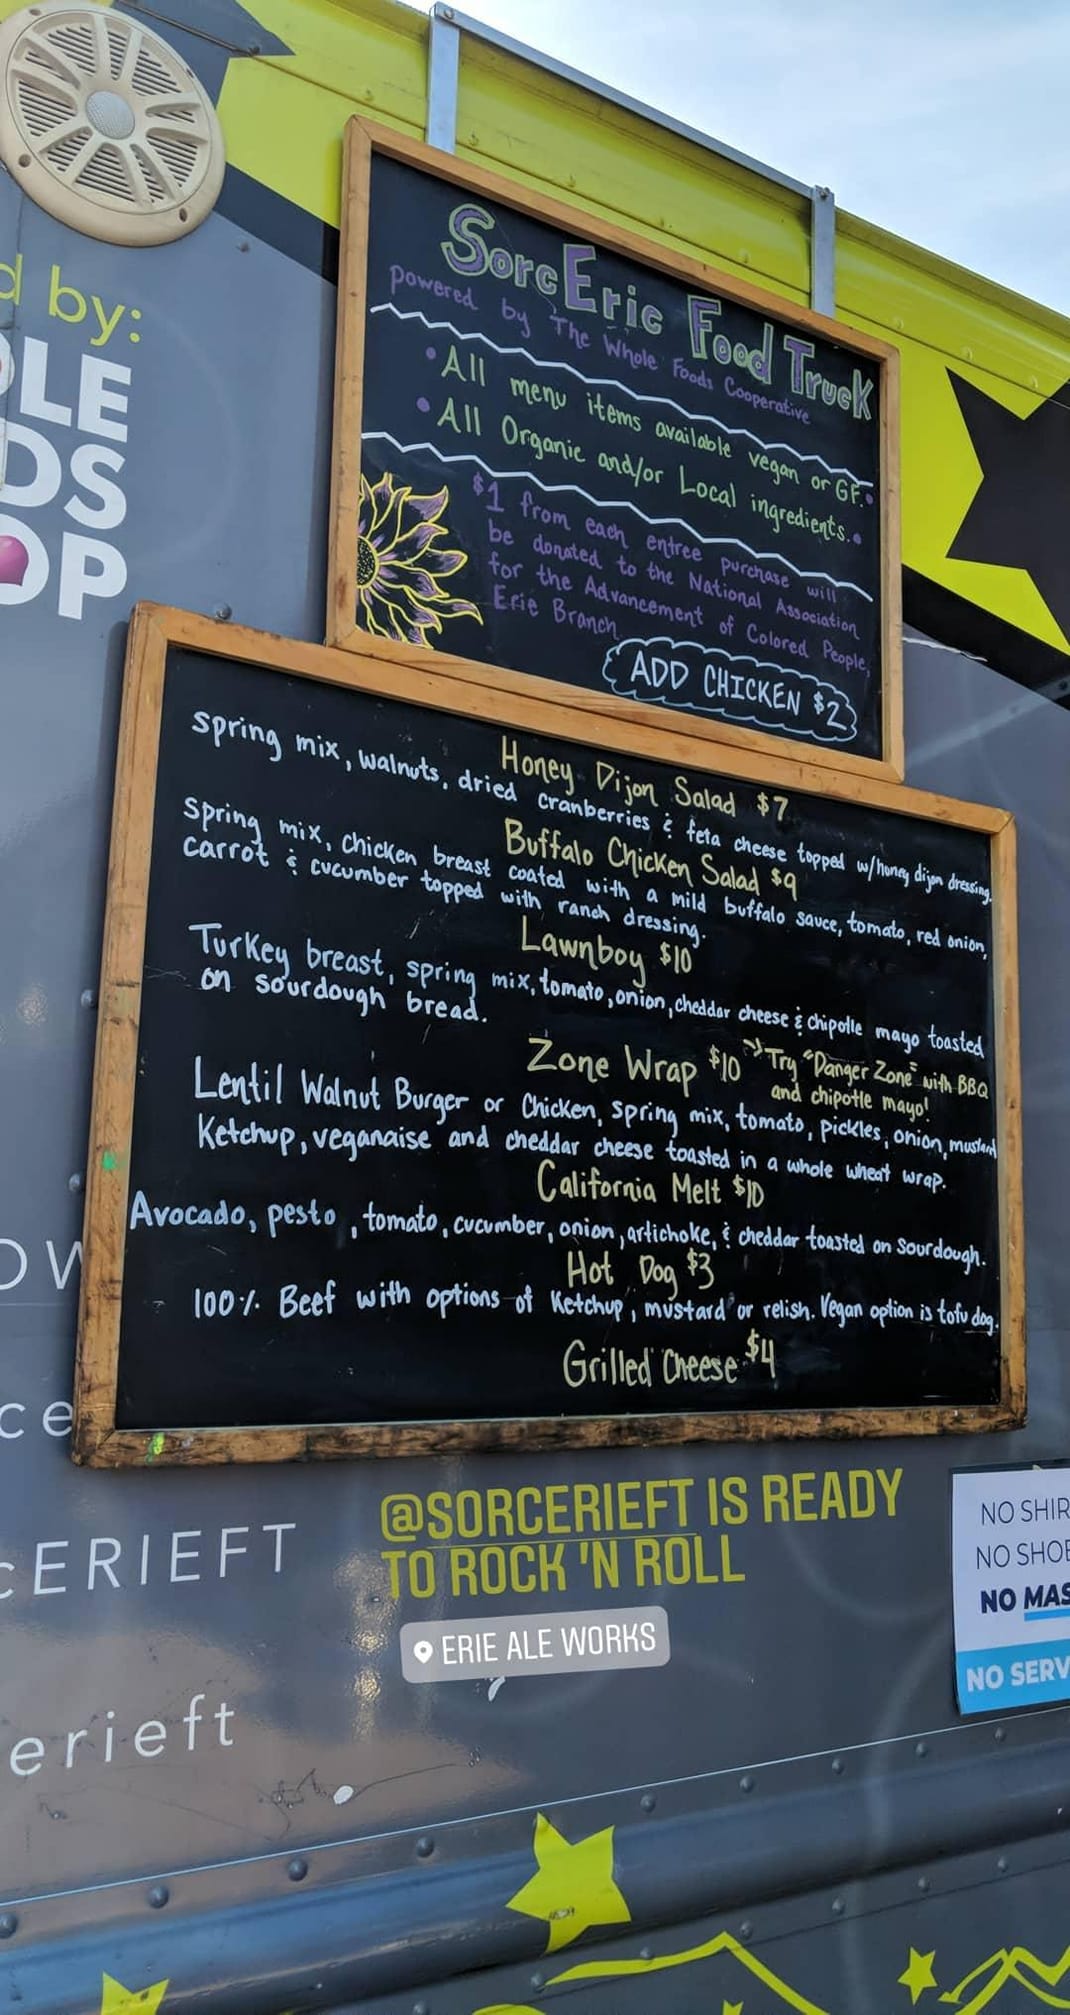 d by:
OLE
ODS
OP
SorcEric Food Truck
powered by The Whole Foods Cooperative
• All menu items available vegan or GF. •
• All Organic and/or Local ingredients. •
$1 from each entree purchase will
be donated to the National Association
for the Advancement of Colored People,
Erie Branch
ADD CHICKEN $2
Honey Dijon Salad $7
Spring mix, walnuts, dried cranberries & feta cheese topped w/honey dijon dressing.
Buffalo Chicken Salad $9
Spring mix, chicken breast coated with a mild buffalo sauce, tomato, red onion,
carrot & cucumber topped with ranch dressing.
Lawnboy $10
Turkey breast, spring mix, tomato, onion, cheddar cheese & chipotle mayo toasted
on sourdough bread.
Zone Wrap $10 Try "Danger Zone" with BBQ
and chipotle mayo!
Lentil Walnut Burger or Chicken, spring mix, tomato, pickles, onion, mustard
Ketchup, veganaise and cheddar cheese toasted in a whole wheat wrap.
California Melt $10
Avocado, pesto, tomato, cucumber, onion, artichoke, & cheddar toasted on sourdough.
Hot Dog $3
100% Beef with options of Ketchup, mustard or relish. Vegan option is tofu dog.
Grilled Cheese $4
OW
ce
cERIEFT
erieft
@SORCERIEFT IS READY
TO ROCK 'N ROLL
ERIE ALE WORKS
NO SHIR
NO SHOE
NO MAS
NO SERV